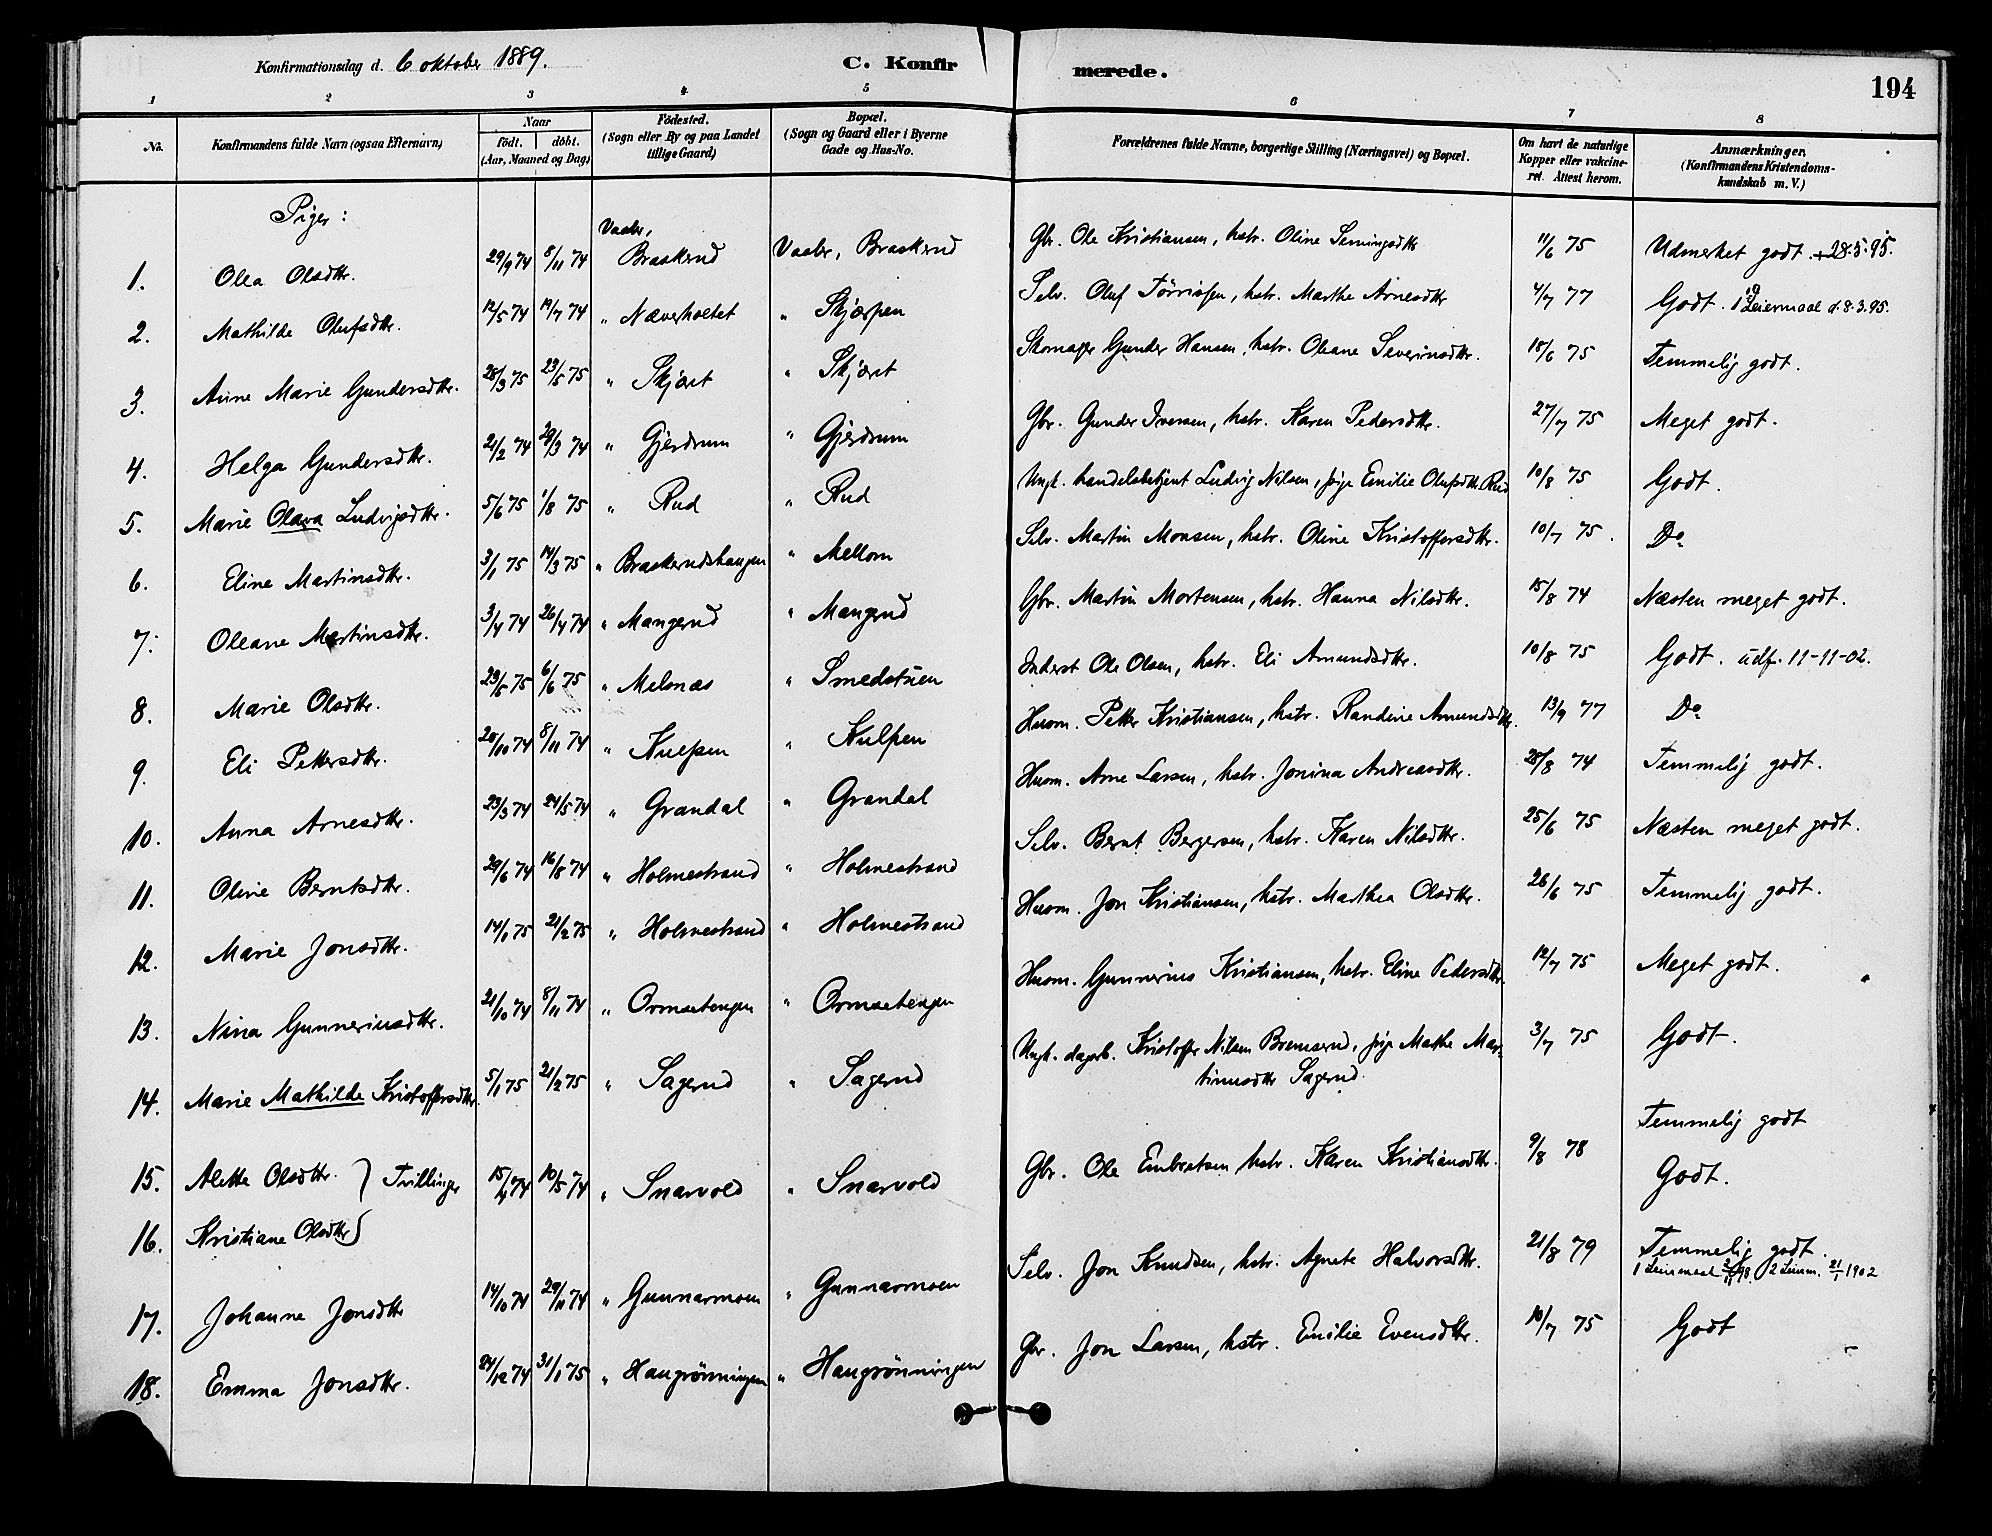 Konfirmationsdag d. 6 oktober 1889. C. Konfirmerede. 194
1 2 3 4 5 6 7 8
No. Konfirmandens fulde Navn (ogsaa Efternavn) Naar födt. döbt. (Aar, Maaned og Dag) Födested. (Sogn eller By og paa Landet tillige Gaard) Bopæl. (Sogn og Gaard eller i Byerne Gade og Hus-No. Forældrenes fulde Navne, borgerlige Stilling (Næringsvei) og Bopæl. Om havt de naturlige Kopper eller vakcineret. Attest herom. Anmærkninger. (Konfirmandens Kristendomskundskab m.V.)
Piger:
1. Olea Olsdtr. 29/9 74 8/11 74 Vaaler, Braskerud Vaaler, Braskerud Gbr. Ole Kristiansen, hstr. Oline Semingsdtr 11/6 75 Udmerket godt. +28.5.95.
2. Mathilde Olufsdtr. 12/5 74 19/7 74 " Næverholtet " Skjærpen Selv. Oluf Törrissen, hstr. Marthe Arnesdtr 4/7 77 Godt. 1 Leiermaal d. 8.3.95.
3. Anne Marie Gundersdtr. 28/3 75 23/5 75 " Skjæret " Skjæret Skomager Gunder Hansen, hstr. Oleane Severinsdtr. 18/6 75 Temmelig godt.
4. Helga Gundersdtr. 21/2 74 29/3 74 " Gjerdrum " Gjerdrum Gbr. Gunder Iversen, hstr. Karen Pedersdtr. 27/7 75 Meget godt.
5. Marie Olava Ludvigsdtr. 5/6 75 1/8 75 " Rud " Rud Ungk. handelsbetjent Ludvig Nilsen, pige Emilie Olufsdtr. Rud 10/8 75 Godt.
6. Eline Martinsdtr. 3/1 75 14/3 75 " Braskerudshaugen " Mellom Selv. Martin Monsen, hstr. Oline Kristoffersdtr. 10/7 75. Do
7. Oleane Martinsdtr. 3/4 74 26/4 74 " Mangerud " Mangrud Gbr. Martin Mortensen, hstr. Hanna Nilsdtr. 15/8 74 Næsten meget godt.
8. Marie Olsdtr. 23/5 75 6/6 75 " Melsnæs " Smedstuen Inderst Ole Olsen, hstr. Eli Amundsdtr. 10/8 75 Godt. udf. 11-11-02.
9. Eli Pettersdtr. 20/10 74 8/11 74 " Kulpen " Kulpen Husm. Petter Kristiansen, hstr. Randine Amundsdtr. 13/9 77 Do
10. Anna Arnesdtr. 23/3 74 24/5 74 " Grandal " Grandal Husm. Arne Larsen, hstr. Jonina Andreasdtr. 28/8 74 Temmelig godt.
11. Oline Berntsdtr. 29/6 74 16/8 74 " Holmestrand " Holmestrand Selv. Bernt Bergersen, hstr. Karen Nilsdtr. 25/6 75 Næsten meget godt.
12. Marie Jonsdtr. 14/1 75 21/2 75 " Holmestrand " Holmestrand Husm. Jon Kristiansen, hstr. Marthea Olsdtr. 26/6 75 Temmelig godt.
13. Nina Gunneriusdtr. 21/10 74 8/11 74 " Ormsetengen " Ormsetengen Husm. Gunnerius Kristiansen, hstr. Eline Pedersdtr. 12/7 75 Meget godt.
14. Marie Mathilde Kristoffersdtr. 5/1 75 21/2 75 " Sagerud " Sagerud Ungk. dagarb. Kristoffer Nilsen Bremserud, pige Mathe Martinusdtr Sagerud. 3/7 75 Godt.
15. Alette Olsdtr. } Tvillinger 15/4 74 10/5 74 " Snarvold " Snarvold Gbr. Ole Embretsen hstr. Karen Kristiansdtr. 9/8 78 Temmelig godt
16. Kristiane Olsdtr } Godt.
17. Johanne Jonsdtr 14/10 74 29/11 74 " Gunnarmoen " Gunnarmoen Selv. Jon Knudsen, hstr. Agnete Halvorsdtr. 21/8 79 Temmelig godt.
1 Leiermaal 98. 2 Leierm. 21/1 1902
18. Emma Jonsdtr. 24/12 74 31/1 75 " Haugrönningen " Haugrönningen Gbr. Jon Larsen, hstr. Emilie Evensdtr. 10/7 75 Godt